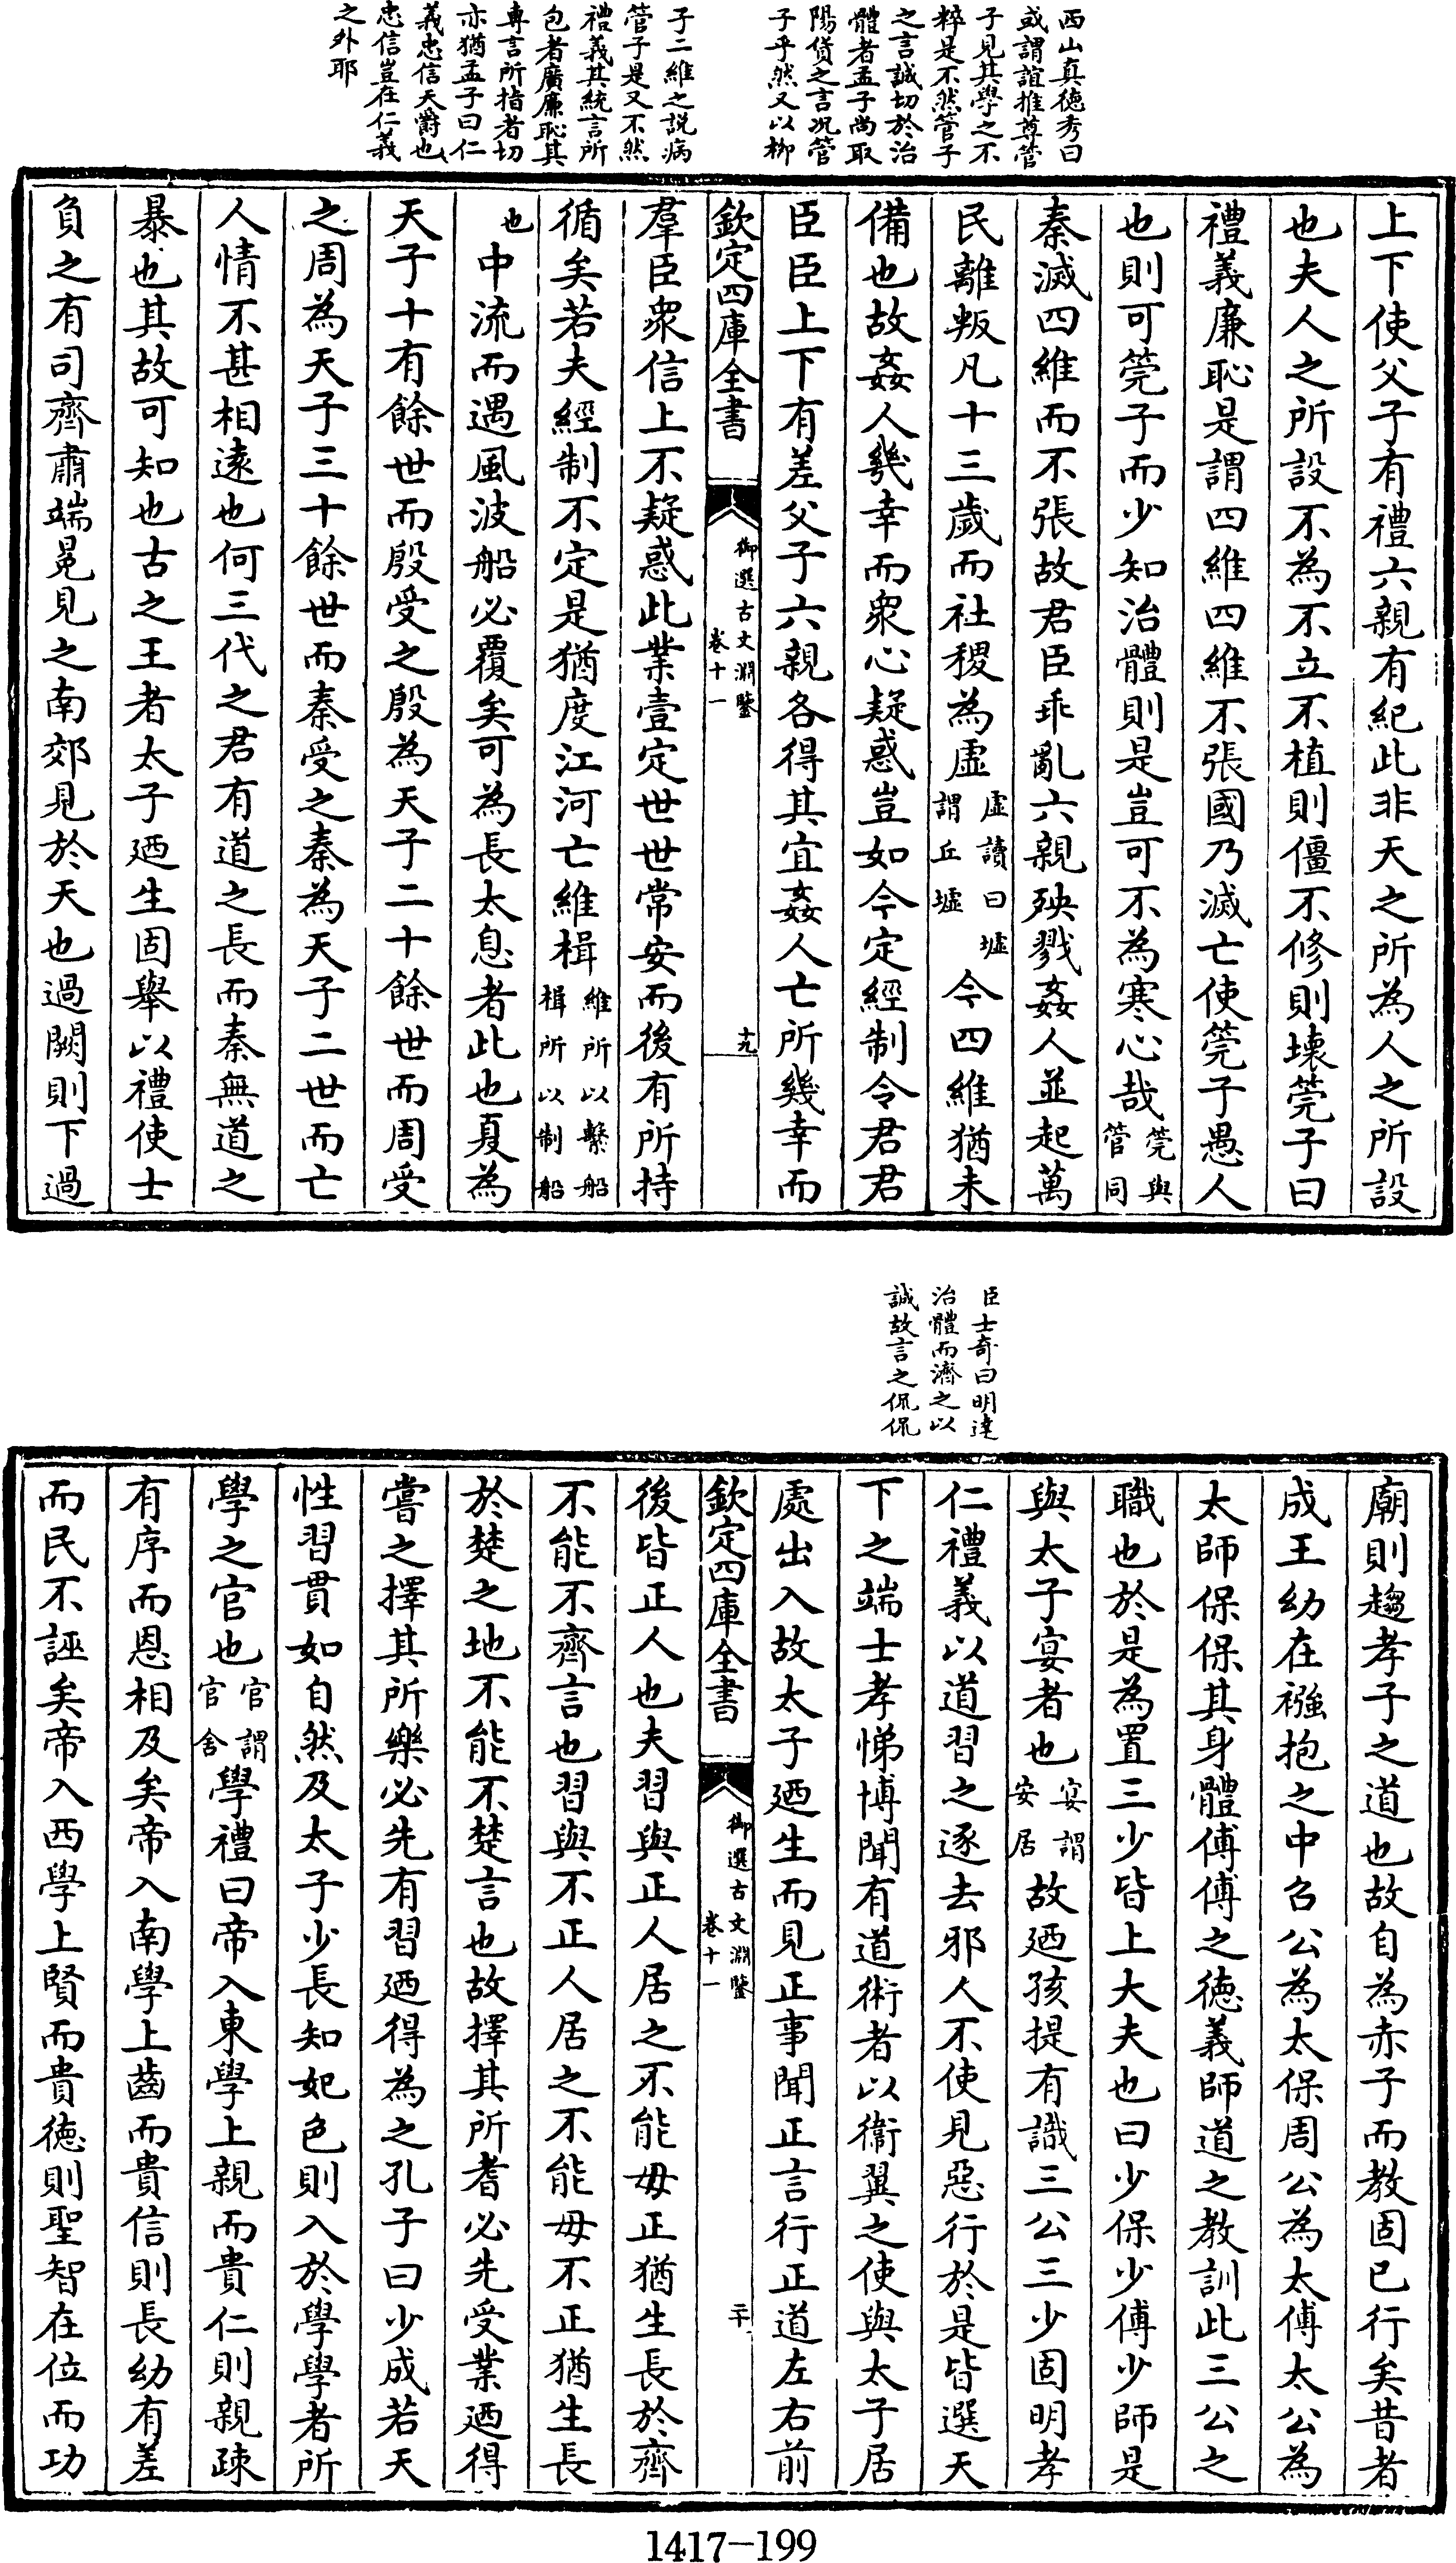 西山真德秀曰
或謂誼推尊管
子見其學之不
粹是不然管子
之言誠切於治
體者孟子尚取
陽貨之言况管
子乎然又以柳
子二維之説病
管子是又不然
禮義其統言所
包者廣廉恥其
專言所指者切
亦猶孟子曰仁
義忠信天爵也
忠信豈在仁義
之外耶
上下使父子有禮六親有紀此非天之所為人之所設
也夫人之所設不為不立不植則僵不修則壞筦子曰
禮義廉恥是謂四維四維不張國乃滅亡使筦子愚人
也則可筦子而少知治體則是豈可不為寒心哉筦與管同
秦滅四維而不張故君臣乖亂六親殃戮姦人並起萬
民離叛凡十三歲而社稷為虛虛讀曰墟謂丘墟今四維猶未
備也故姦人幾幸而衆心疑惑豈如今定經制令君君
臣臣上下有差父子六親各得其宜姦人亡所幾幸而
欽定四庫全書 御選古文淵鑒 卷十一 十九
羣臣衆信上不疑惑此業壹定世世常安而後有所持
循矣若夫經制不定是猶度江河亡維楫維所以繫船楫所以制船
也中流而遇風波船必覆矣可為長太息者此也夏為
天子十有餘世而殷受之殷為天子二十餘世而周受
之周為天子三十餘世而秦受之秦為天子二世而亡
人情不甚相遠也何三代之君有道之長而秦無道之
暴也其故可知也古之王者太子廼生固舉以禮使士
負之有司齊肅端冕見之南郊見於天也過闕則下過
臣士奇曰明達
治體而濟之以
誠故言之侃侃
廟則趨孝子之道也故自為赤子而教固已行矣昔者
成王幼在襁抱之中召公為太保周公為太傅太公為
太師保保其身體傅傅之德義師道之教訓此三公之
職也於是為置三少皆上大夫也曰少保少傅少師是
與太子宴者也宴謂安居故廼孩提有識三公三少固明孝
仁禮義以道習之逐去邪人不使見惡行於是皆選天
下之端士孝悌博聞有道術者以衞翼之使與太子居
處出入故太子廼生而見正事聞正言行正道左右前
欽定四庫全書 御選古文淵鑒 卷十一 二十
後皆正人也夫習與正人居之不能毋正猶生長於齊
不能不齊言也習與不正人居之不能毋不正猶生長
於楚之地不能不楚言也故擇其所耆必先受業廼得
嘗之擇其所樂必先有習廼得為之孔子曰少成若天
性習貫如自然及太子少長知妃色則入於學學者所
學之官也官謂官舍學禮曰帝入東學上親而貴仁則親疎
有序而恩相及矣帝入南學上齒而貴信則長幼有差
而民不誣矣帝入西學上賢而貴德則聖智在位而功
1417-199